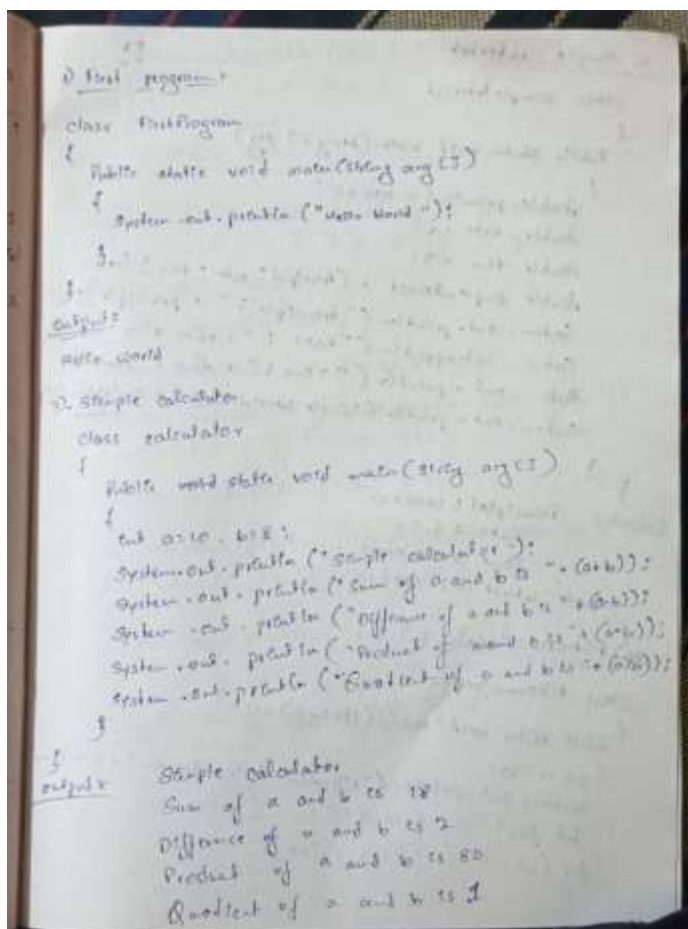 1) First program:
class FirstProgram
{
Public static void main(String arg[])
{
System.out.println("Hello World");
}
}
Output:
Hello World
2) Simple calculator
class calculator
{
Public void static void main(String arg[])
{
int a=10, b=8;
System.out.println("Simple calculator");
System.out.println("Sum of a and b is "+(a+b));
System.out.println("Differance of a and b is "+(a-b));
System.out.println("Product of a and b is "+(a*b));
System.out.println("Quodient of a and b is "+(a/b));
}
}
output:
Simple calculator
Sum of a and b is 18
Differance of a and b is 2
Product of a and b is 80
Quodient of a and b is 1